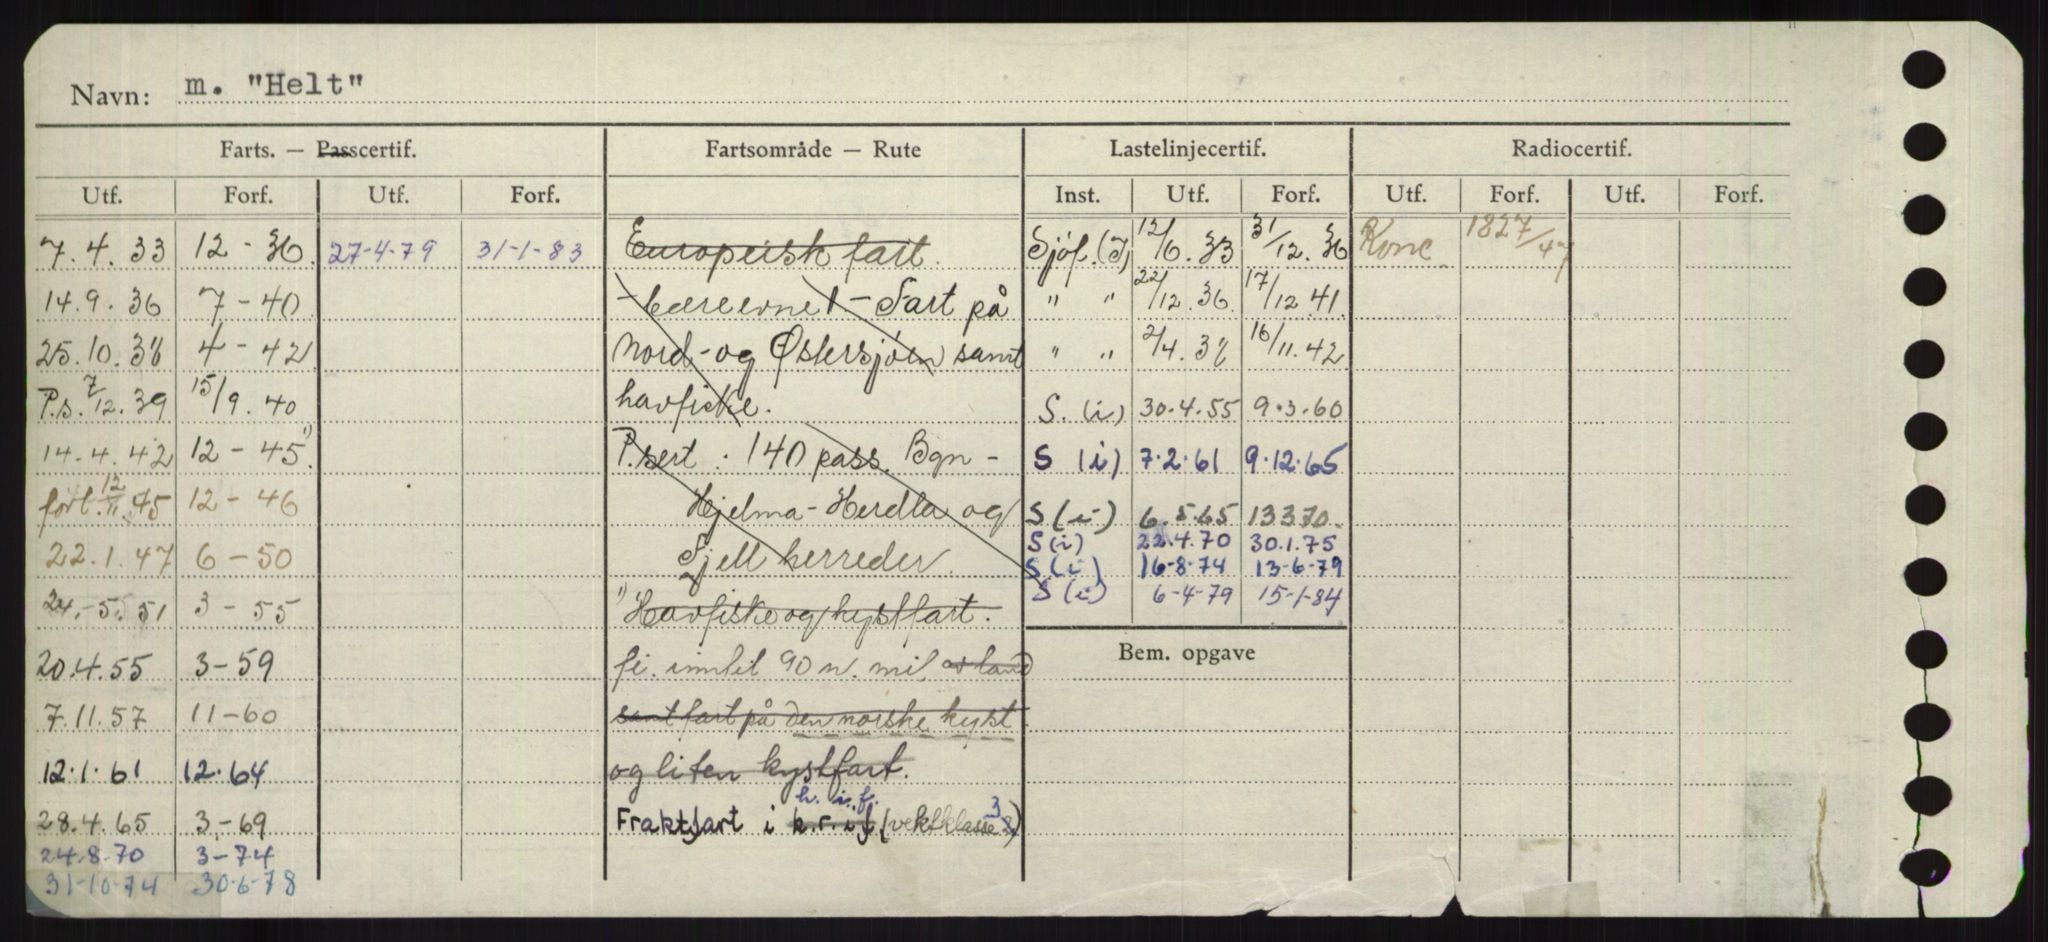 Navn: m. "Helt"
Farts. — Passcertif. Fartsområde — Rute Lastelinjecertif. Radiocertif.
Utf. Forf. Utf. Forf. Inst. Utf. Forf. Utf. Forf. Utf. Forf.
7.4.33 12-36 27-4-79 31-1-83 Europeisk fart. Sjöf.(I) 12/6.33 31/12.36 Konc. 1827/47
14.9.36 7-40 Fart på " " 22/12.36 17/12.41.
25.10.38 4-42 Nord- og Østersjøen samt " " 2/4.38 16/11.42
P.s. 7/12.39 15/9.40 havfiske. S.(i) 30.4.55 9.3.60
14.4.42 12-45 1) P.sert: 140 pass. Bgn- S (i) 7.2.61 9.12.65
forl. 12/11.45 12-46 Hjelma-Herdla og S (i) 6.5.65 13370.
S(i) 22.4.70 30.1.75
22.1.47 6-50 Fjell herreder. S(i) 16-8-74 13-6-79
24.-5.51 3-55 1) Havfiske og kystfart. S(i) 6-4-79 15-1-84
20.4.55 3-59 fi. inntil 90 n. mil. av land Bem. opgave
7.11.57 11-60 samt fart på den norske kyst.
12.1.61 12.64 og liten kystfart.
h. i. f.
28.4.65 3-69 Fraktfart i k.r.i.f (vektklasse 2) 3
24-8-70 3-74
31-10-74 30-6-78